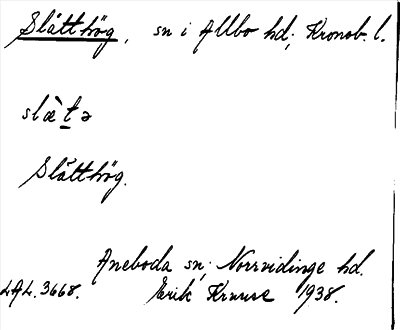 Slätthög, sn i Allbo hd; Kronob. l.
slæ̀t̠ə
Slätthög.
Aneboda sn; Norrvidinge hd.
LAL. 3668. Erik Kruuse 1938.